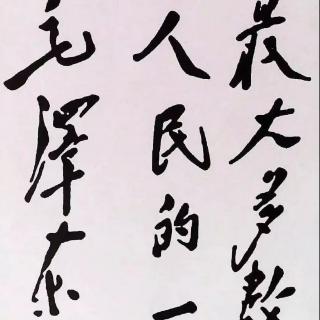 最大多数
人民的一
毛泽东